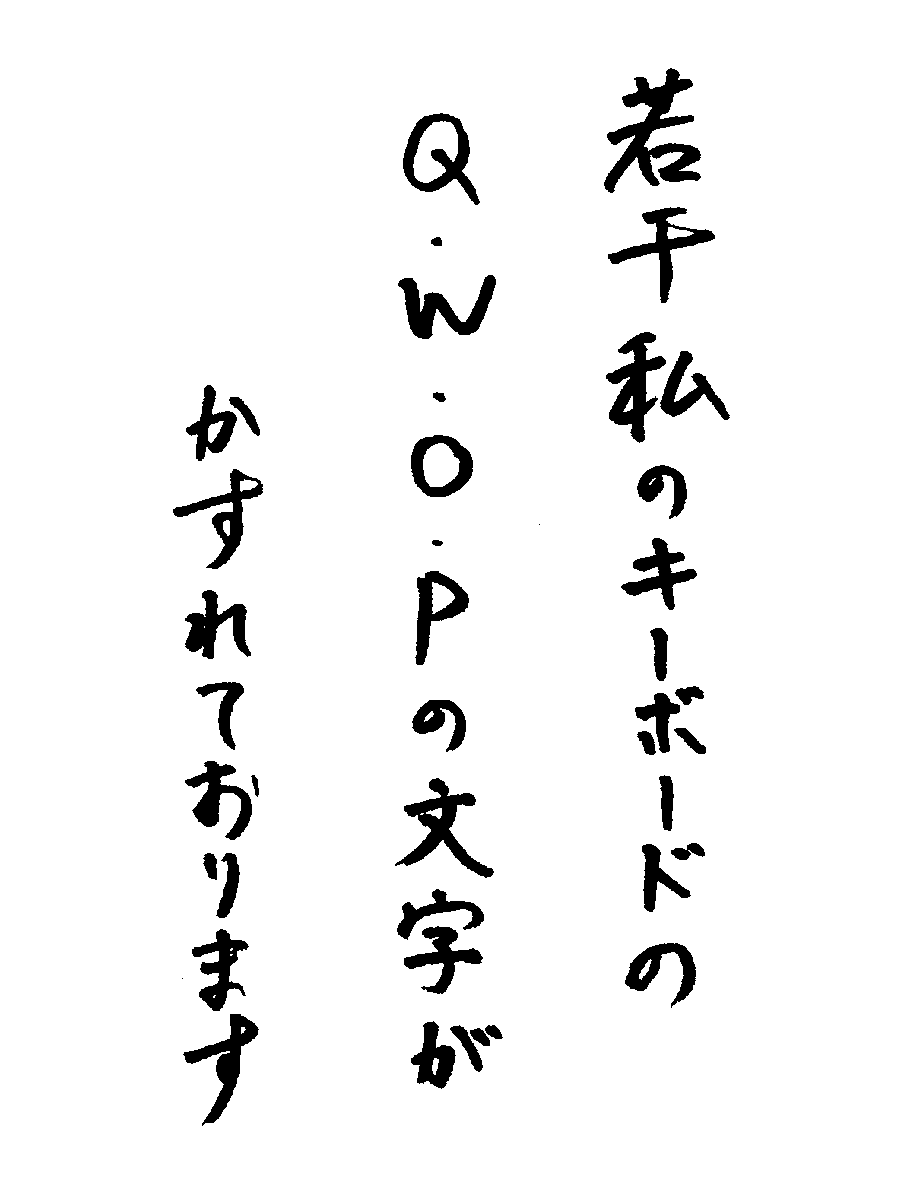 若干私のキーボードの
Q・W・O・Pの文字が
かすれております